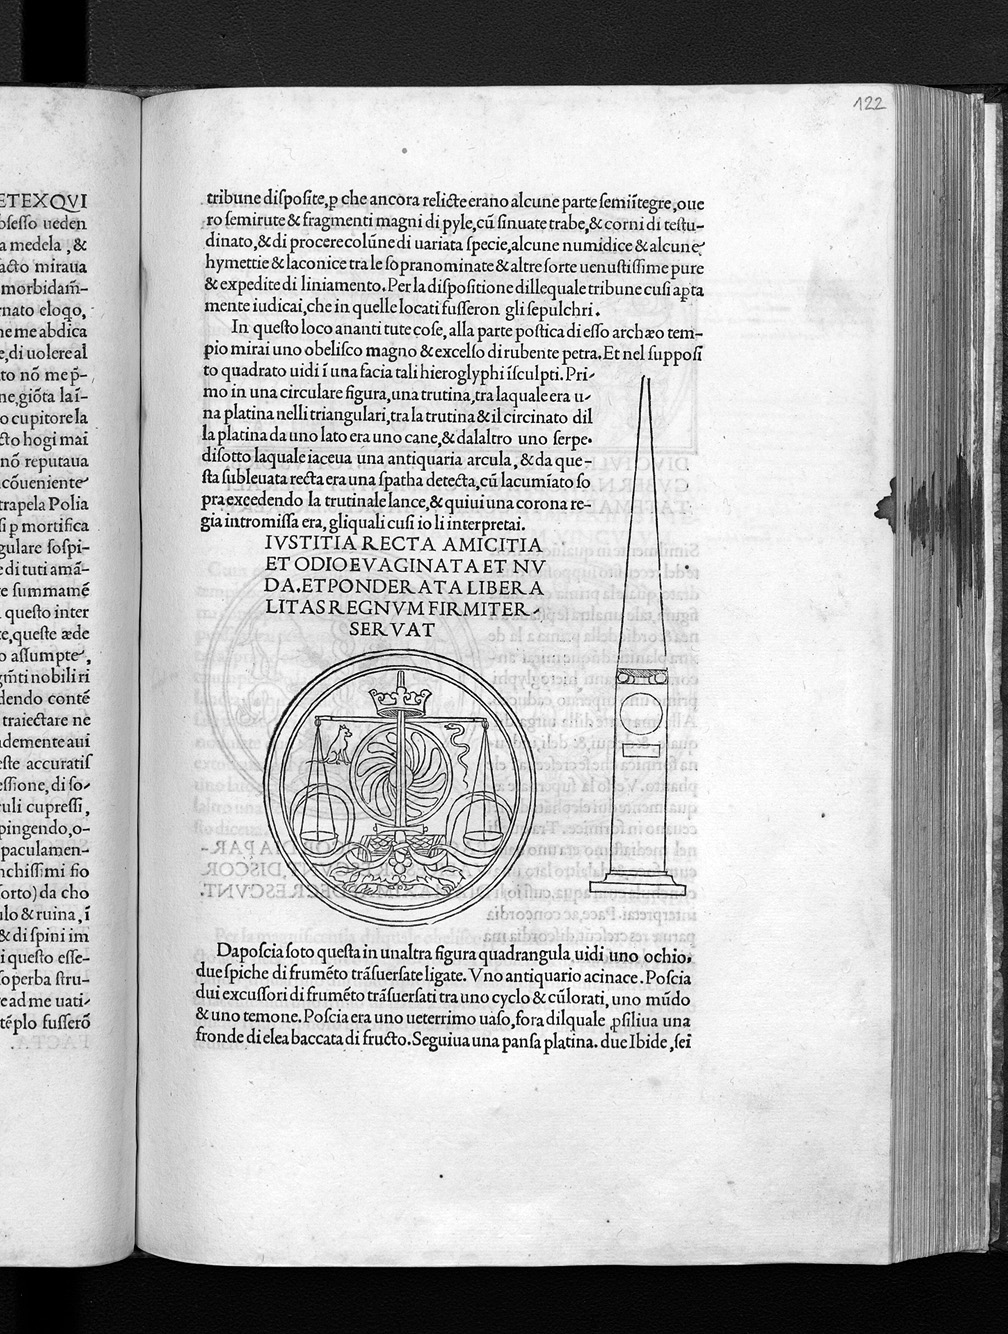 ETEXQVI
obſeſſo ueden
a medela, &
acto miraua
morbidam̃-
rnato eloqo,
ne me abdica
e, di uolere al
to nõ me p̃-
ne, giõta la ĩ-
o cupitore la
cto hogi mai
nõ reputaua
cõueniente
trapela Polia
ſi p mortifica
gulare ſoſpi-
e di tuti amã-
e ſummamẽ
queſto inter
te, queſte æde
o aſſumpte,
gm̃ti nobili ri
dendo contẽ
traiectare ne
ndemente aui
eſte accuratiſ
eſſione, di ſo-
culi cupreſſi,
pingendo, o-
paculamen-
nchiſſimi ſio
ſorto) da cho
ulo & ruina, ĩ
& di ſpini im
i queſto eſſe-
ſoperba ſtru-
e ad me uati-
tẽplo fuſſerõ
122
tribune diſpoſite, p che ancora relicte erano alcune parte ſemiĩtegre, oue
ro ſemirute & fragmenti magni di pyle, cũ ſinuate trabe, & corni di teſtu-
dinato, & di procere colũne di uariata ſpecie, alcune numidice & alcune
hymettie & laconice tra le ſopranominate & altre ſorte uenuſtiſſime pure
& expedite di liniamento. Per la diſpoſitione dillequale tribune cuſi apta
mente iudicai, che in quelle locati fuſſeron gli ſepulchri.
In queſto loco ananti tute coſe, alla parte poſtica di eſſo archæo tem-
pio mirai uno obeliſco magno & excelſo di rubente petra. Et nel ſuppoſi
to quadrato uidi ĩ una facia tali hieroglyphi ĩſculpti. Pri-
mo in una circulare figura, una trutina, tra laquale era u-
na platina nelli triangulari, tra la trutina & il circinato dil
la platina da uno lato era uno cane, & dalaltro uno ſerpe.
diſotto laquale iaceua una antiquaria arcula, & da que-
ſta ſubleuata recta era una ſpatha detecta, cũ lacumiato ſo
pra excedendo la trutinale lance, & quiui una corona re-
gia intromiſſa era, gliquali cuſi io li interpretai.
IVSTITIA RECTA AMICITIA
ET ODIO EVAGINATA ET NV
DA. ET PONDERATA LIBERA
LITAS REGNVM FIRMITER-
SERVAT
Dapoſcia ſoto queſta in unaltra figura quadrangula uidi uno ochio,
due ſpiche di frumẽto trãſuerſate ligate. Vno antiquario acinace. Poſcia
dui excuſſori di frumẽto trãſuerſati tra uno cyclo & cũlorati, uno mũdo
& uno temone. Poſcia era uno ueterrimo uaſo, fora dilquale ꝓſiliua una
fronde di elea baccata di fructo. Seguiua una panſa platina. due Ibide, ſei